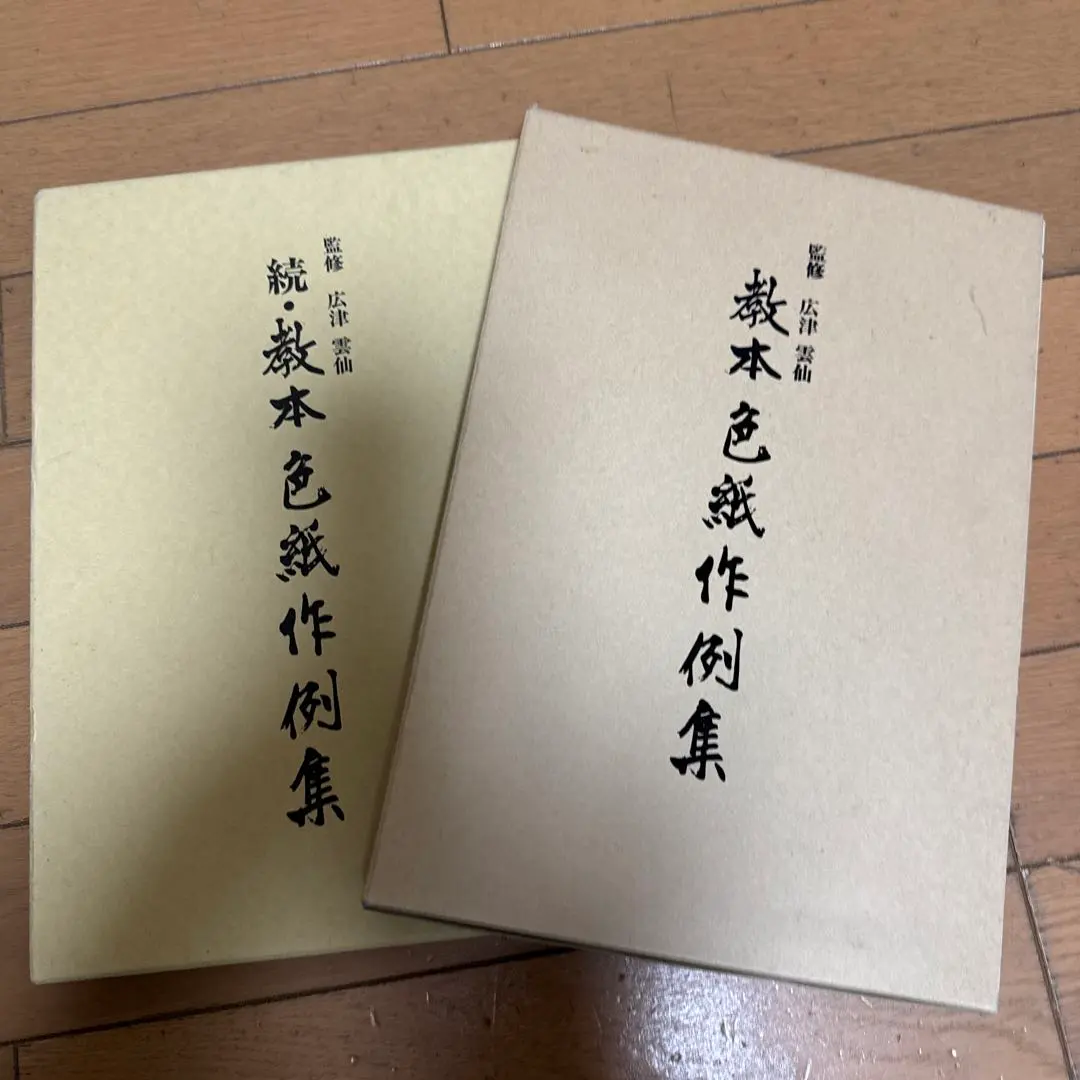 監修 広津 雲仙
教本色紙作例集
監修 広津 雲仙
続・教本色紙作例集